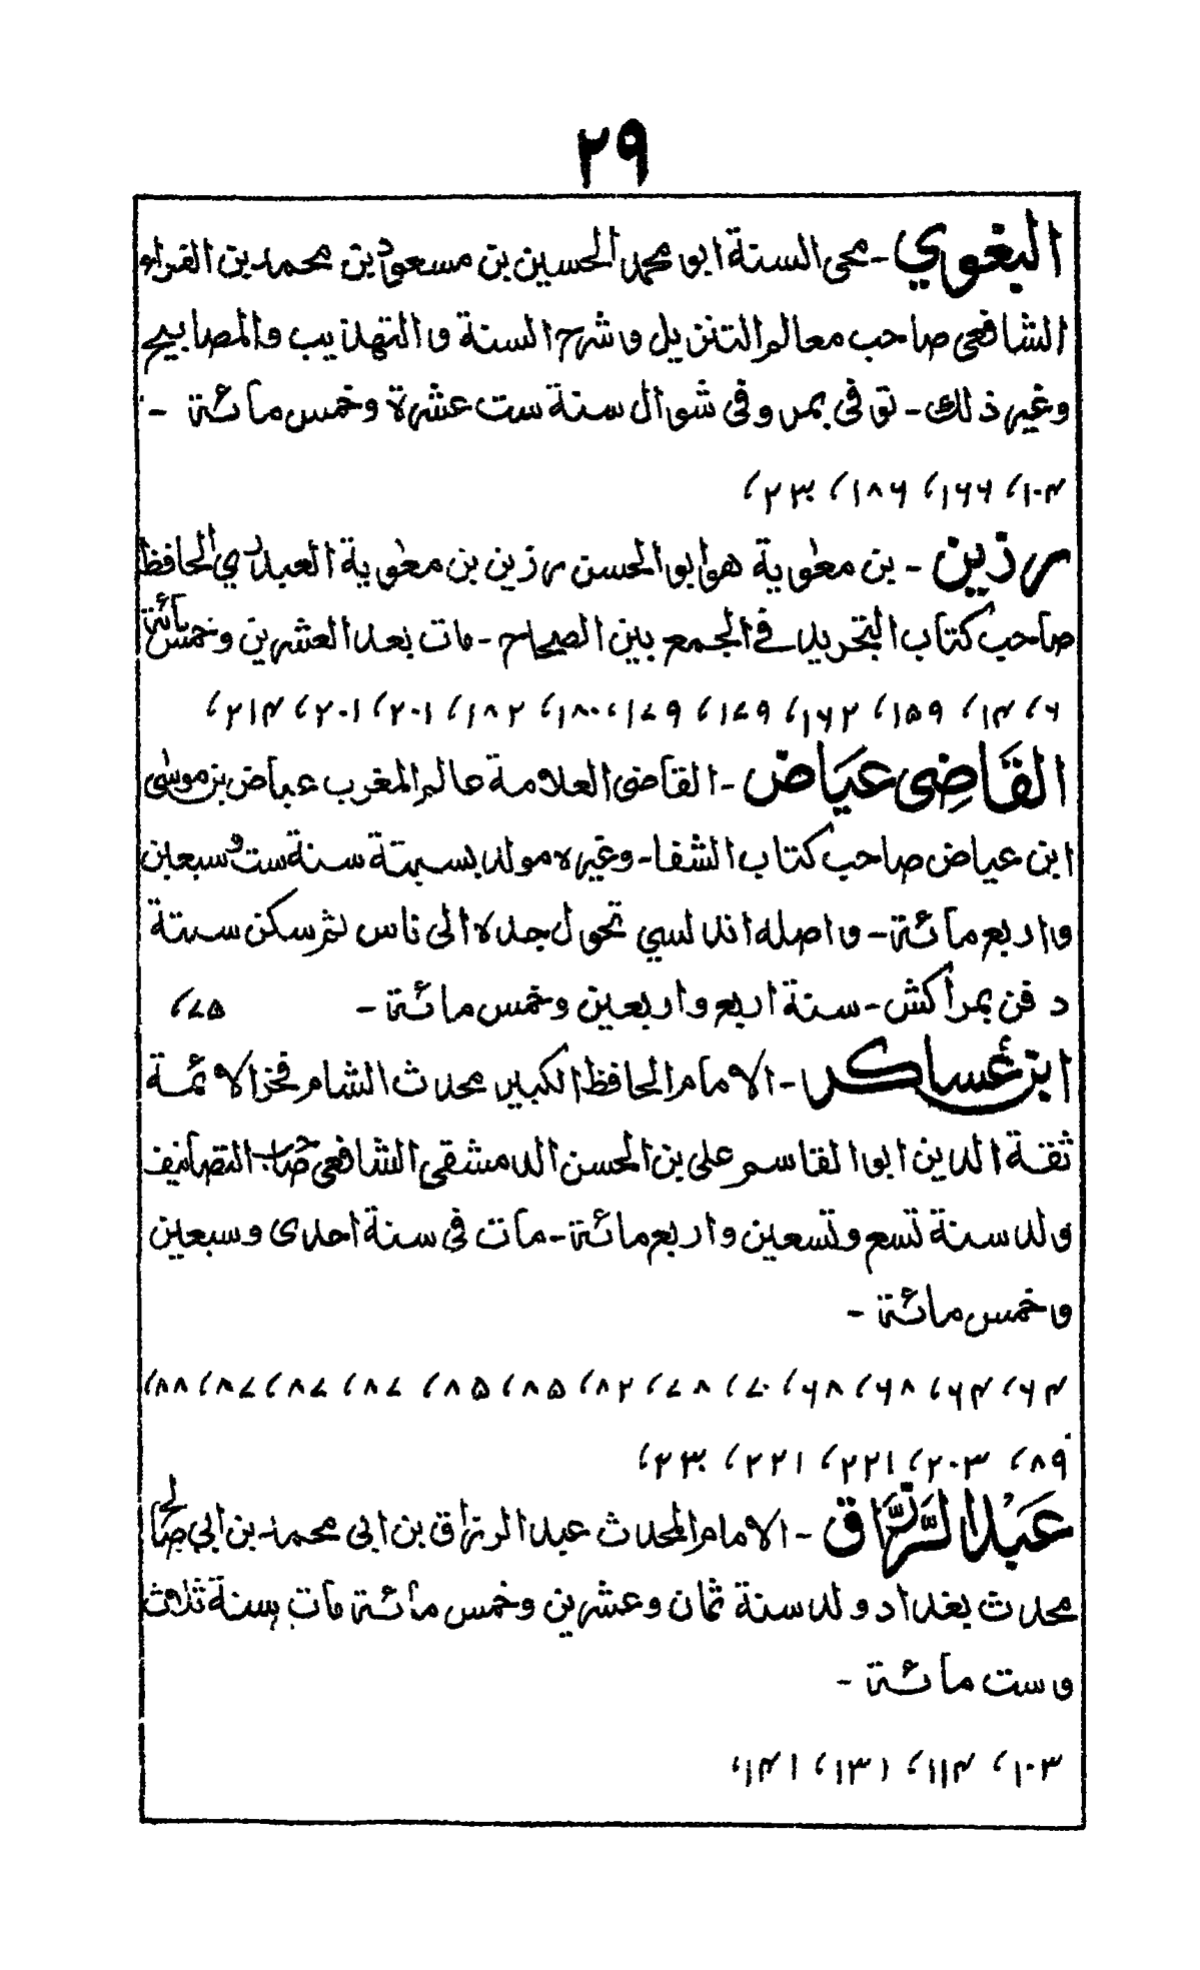 ۲۹
البغوي - محى السنة ابو محمد الحسين بن مسعود بن محمد بن الفراء
الشافعى صاحب معالم التنزيل و شرح السنة و التهذيب والمصابيح
وغير ذلك - توفى بمرو فى شوال سنة ست عشرة وخمس مائة -
۱۰۴، ۱۶۶، ۱۸۶، ۲۳۰،
رزين - بن معٰوية هو ابو الحسن رزين بن معٰوية العبدري الحافظ
صاحب كتاب التجريد فے الجمع بين الصحاح - مات بعد العشرين وخمسمائة
۶، ۱۴، ۱۵۹، ۱۶۲، ۱۷۹، ۱۷۹، ۱۸۰، ۱۸۲، ۲۰۱، ۲۰۱، ۲۱۴،
القَاضِى عيَاض - القاضى العلامة عالم المغرب عياض بن موسٰى
ابن عياض صاحب كتاب الشفا - وغيره مولد بسبتة سنة ست و سبعين
و اربع مائة - و اصله اندلسي تحول جده الى ناس ثم سكن سبتة
دفن بمراكش - سنة اربع و اربعين وخمس مائة - ۷۵،
ابن عساكر - الامام الحافظ الكبير محدث الشام فخر الائمة
ثقة الدين ابو القاسم على بن الحسن الدمشقى الشافعى صاحب التصانيف
ولد سنة تسع وتسعين و اربع مائة - مات فى سنة احدى و سبعين
وخمس مائة -
۶۴، ۶۴، ۶۸، ۶۸، ۷۰، ۷۸، ۸۲، ۸۵، ۸۵، ۸۷، ۸۷، ۸۷، ۸۸،
۸۹، ۲۰۳، ۲۲۱، ۲۲۱، ۲۳۰،
عَبْد الرَّزَّاق - الامام المحدث عبد الرزاق بن ابى محمد بن ابي صالح
محدث بغداد ولد سنة ثمان وعشرين وخمس مائة مات بسنة ثلاث
و ست مائة -
۱۰۳، ۱۱۴، ۱۳۱، ۱۴۱،